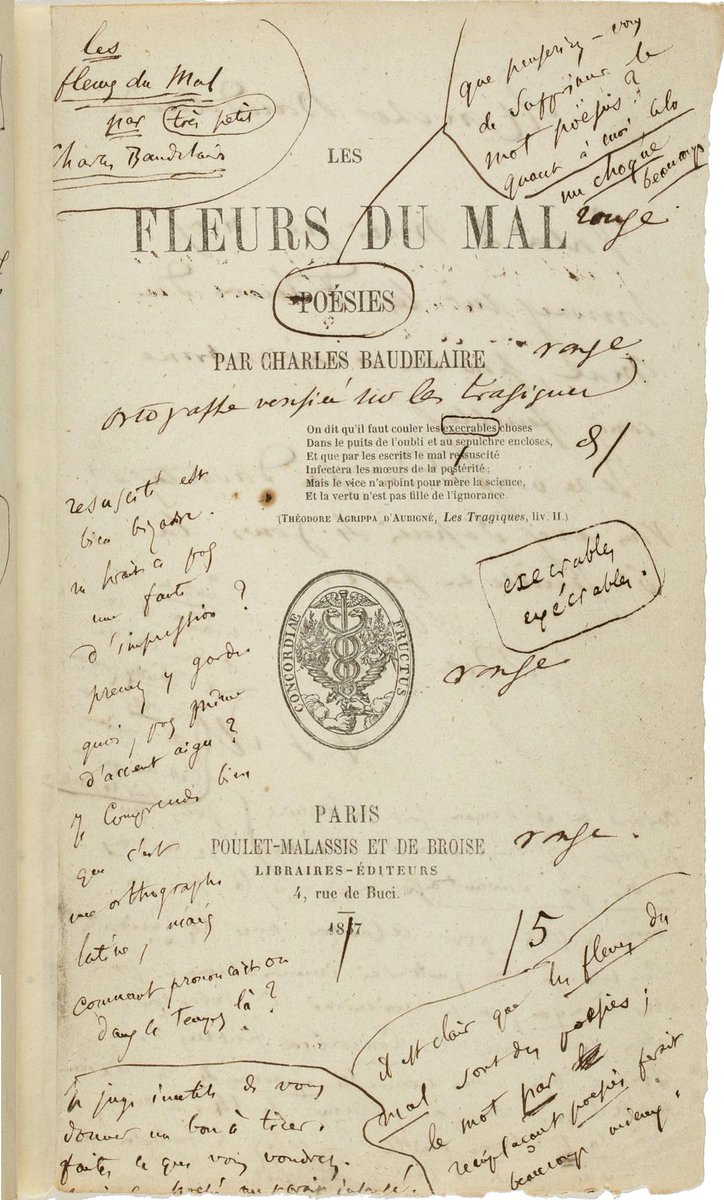 les
fleurs du Mal
par très petit
Charles Baudelaire
que penseriez-vous
de supprimer le
mot poësies ?
quant à moi cela
me choque
beaucoup
LES
FLEURS DU MAL
rouge.
POÉSIES
PAR CHARLES BAUDELAIRE
rouge.
ortografe verifiée sur les tragiques
On dit qu'il faut couler les execrables choses
Dans le puits de l'oubli et au sepulchre encloses,
Et que par les escrits le mal ressuscité
Infectera les mœurs de la postérité ;
Mais le vice n'a point pour mère la science,
Et la vertu n'est pas fille de l'ignorance.
(THÉODORE AGRIPPA D'AUBIGNÉ, Les Tragiques, liv. II.)
resuscité est
bien bizarre.
ne serait-ce pas
une faute
d'impression ?
prenez y garde.
quoi, pas même
d'accent aigu ?
je comprends bien
que c'est
une orthographe
latine, mais
comment prononçait-on
dans ce temps là ?
execrables
exécrables.
CONCORDIÆ FRUCTUS
rouge
PARIS
POULET-MALASSIS ET DE BROISE
rouge.
LIBRAIRES-ÉDITEURS
4, rue de Buci.
1857
/5
il est clair que les fleurs du
mal sont des poësies ;
le mot par
remplaçant poësies ferait
beaucoup mieux.
je juge inutile de vous
donner un bon à tirer.
faites ce que vous voudrez.